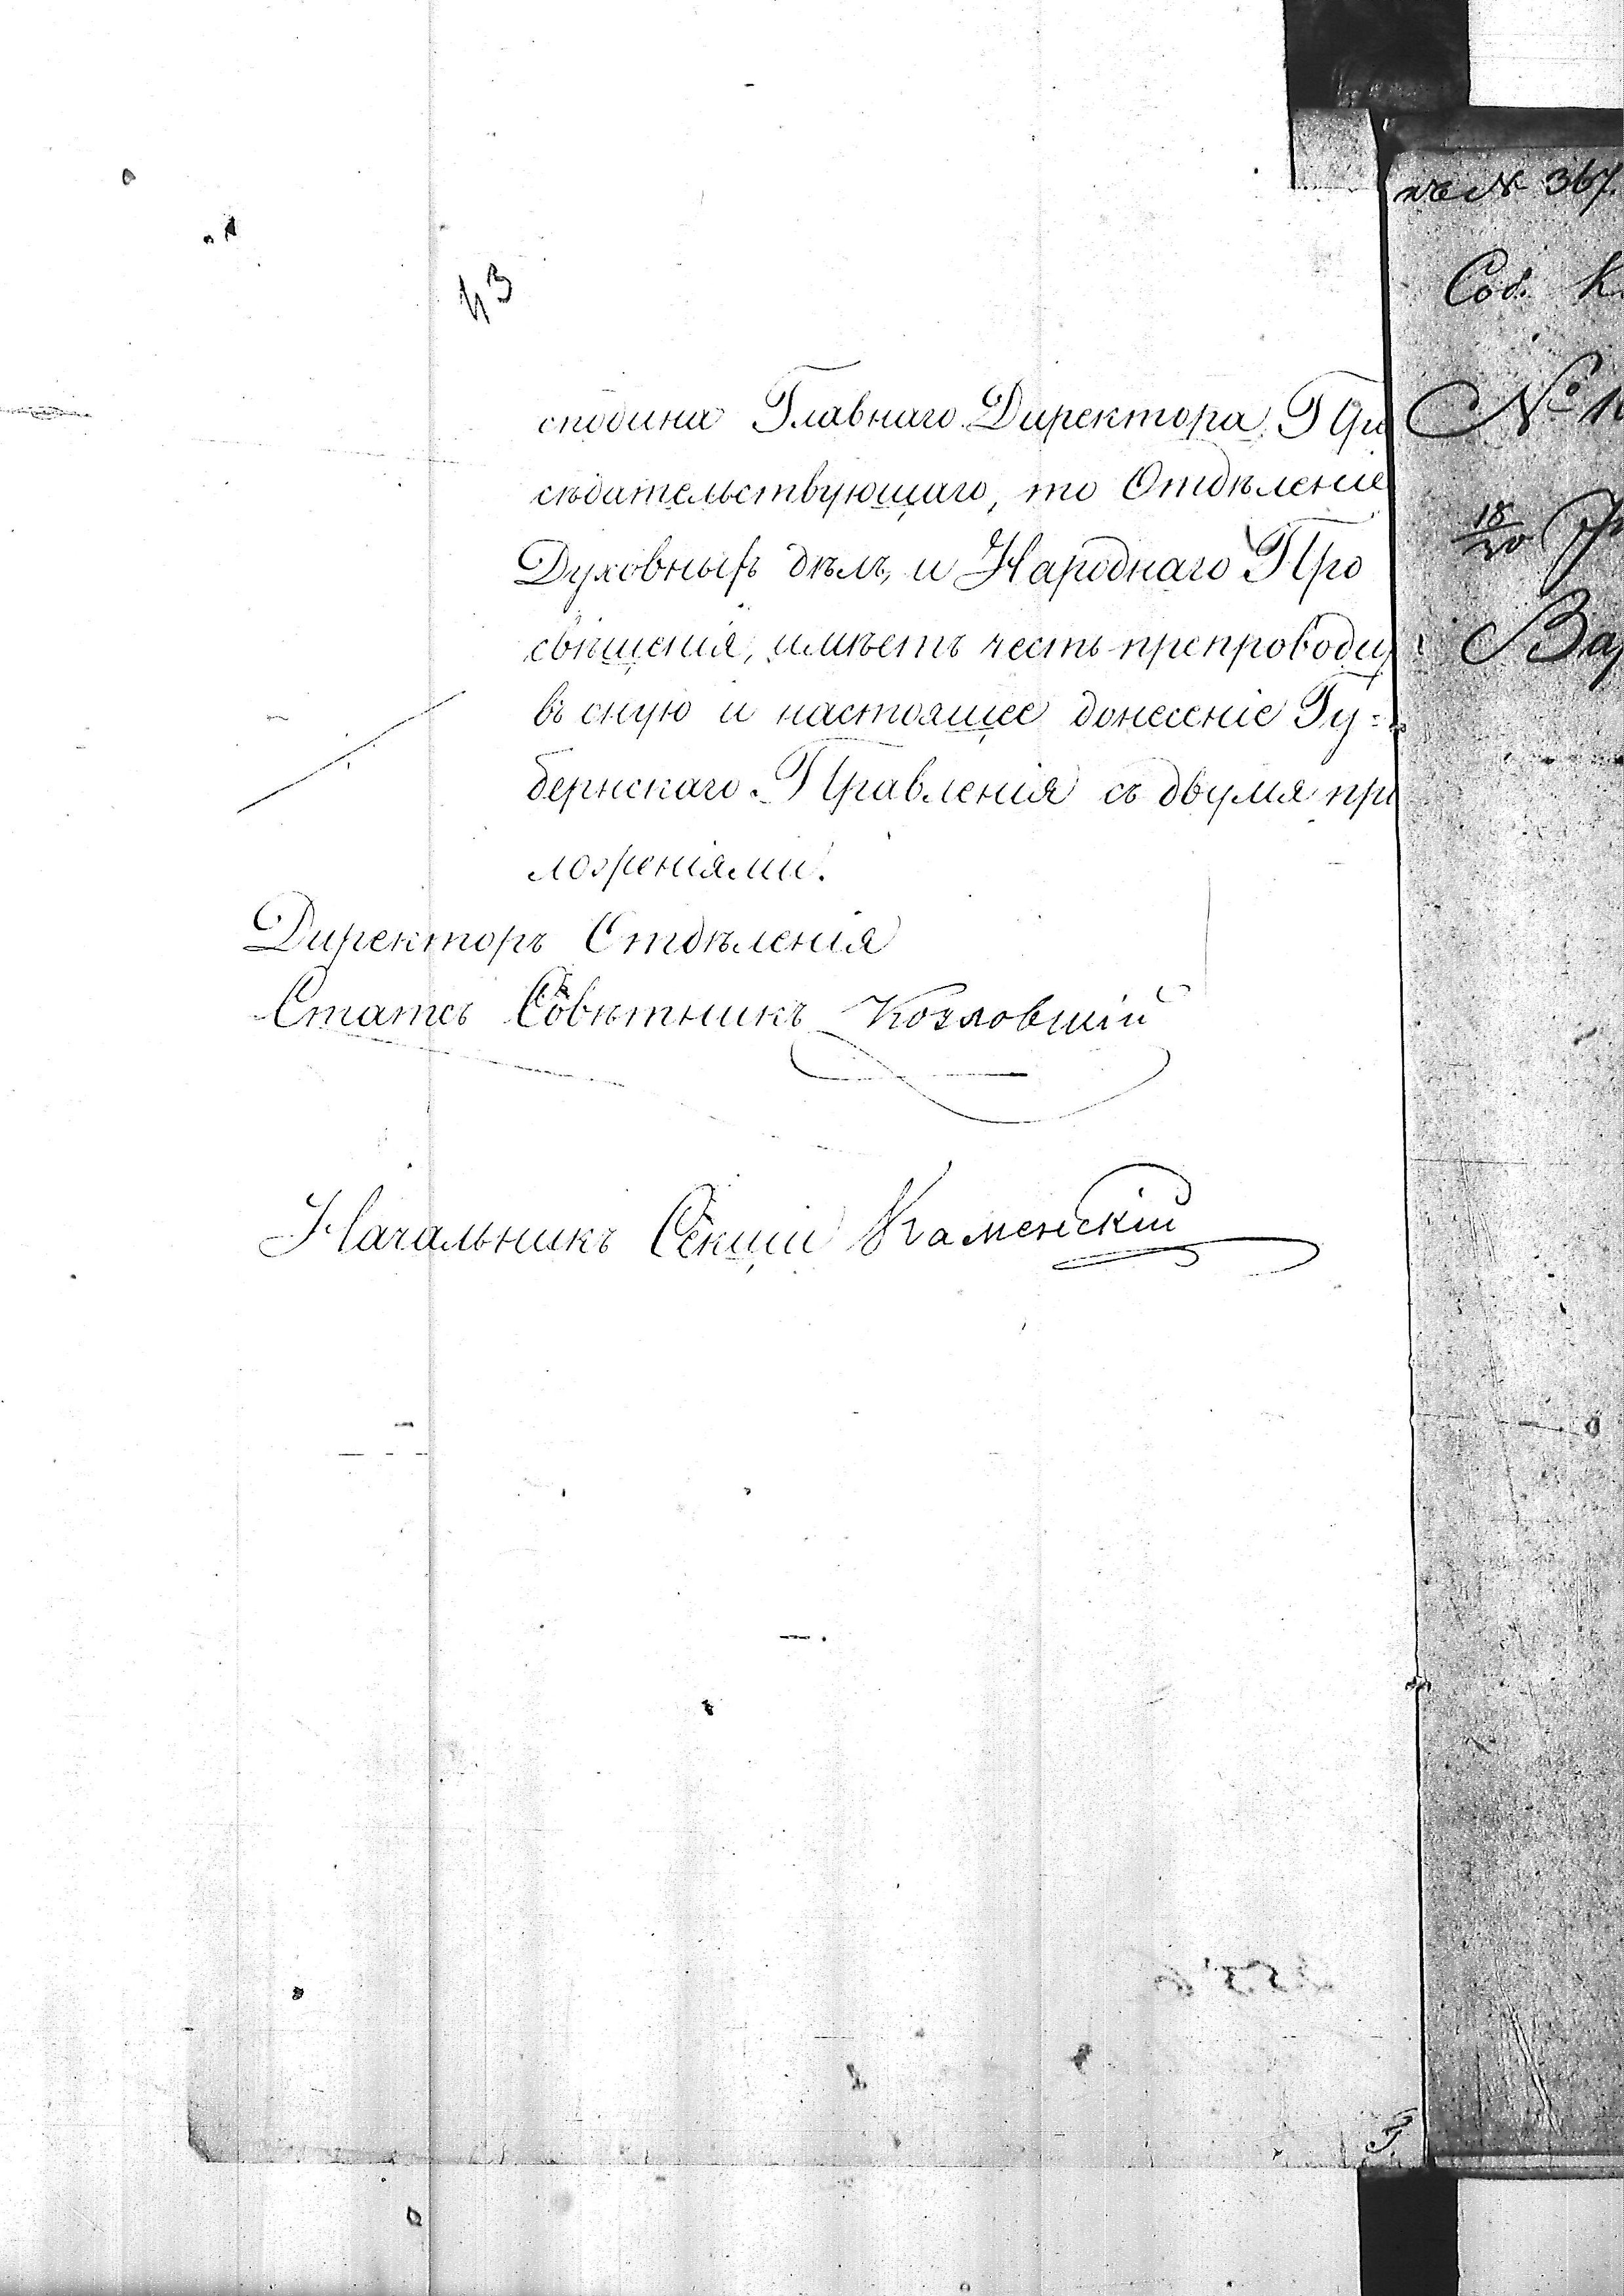 43
сподина Главнаго Директора Пре
сѣдательствующаго, то Отдѣленіе
Духовныхъ дѣлъ, и Народнаго Про
свѣщенія, имѣетъ честь препроводи
въ оную и настоящее донесеніе Гу=
бернскаго Правленія съ двумя при
ложеніями.
Директоръ Отдѣленія
Статсъ Совѣтникъ Козловскій
Начальникъ Секціи Каменскій
№ 367.
Сод. К
№ 1
18/30
Вар